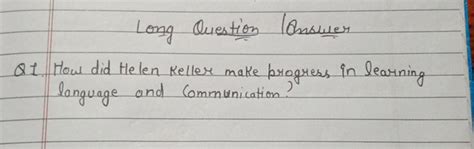 Long Question / Answer
Q1. How did Helen Keller make progress in learning
language and Communication?